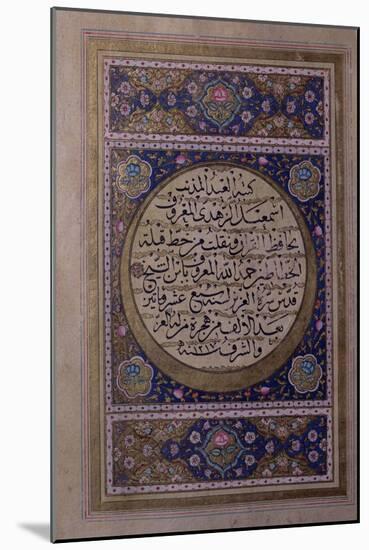 كتبه العبد المذنب
اسمعيل الزهدي المعروف
بحافظ القرآن ونقلت من خط قبلة
الخطاطين حمد الله المعروف بابن الشيخ
قدس سره العزيز لسنة سبع عشر ومأتين
بعد الألف من هجرة من له العز
والشرف سنة ١٢١٧